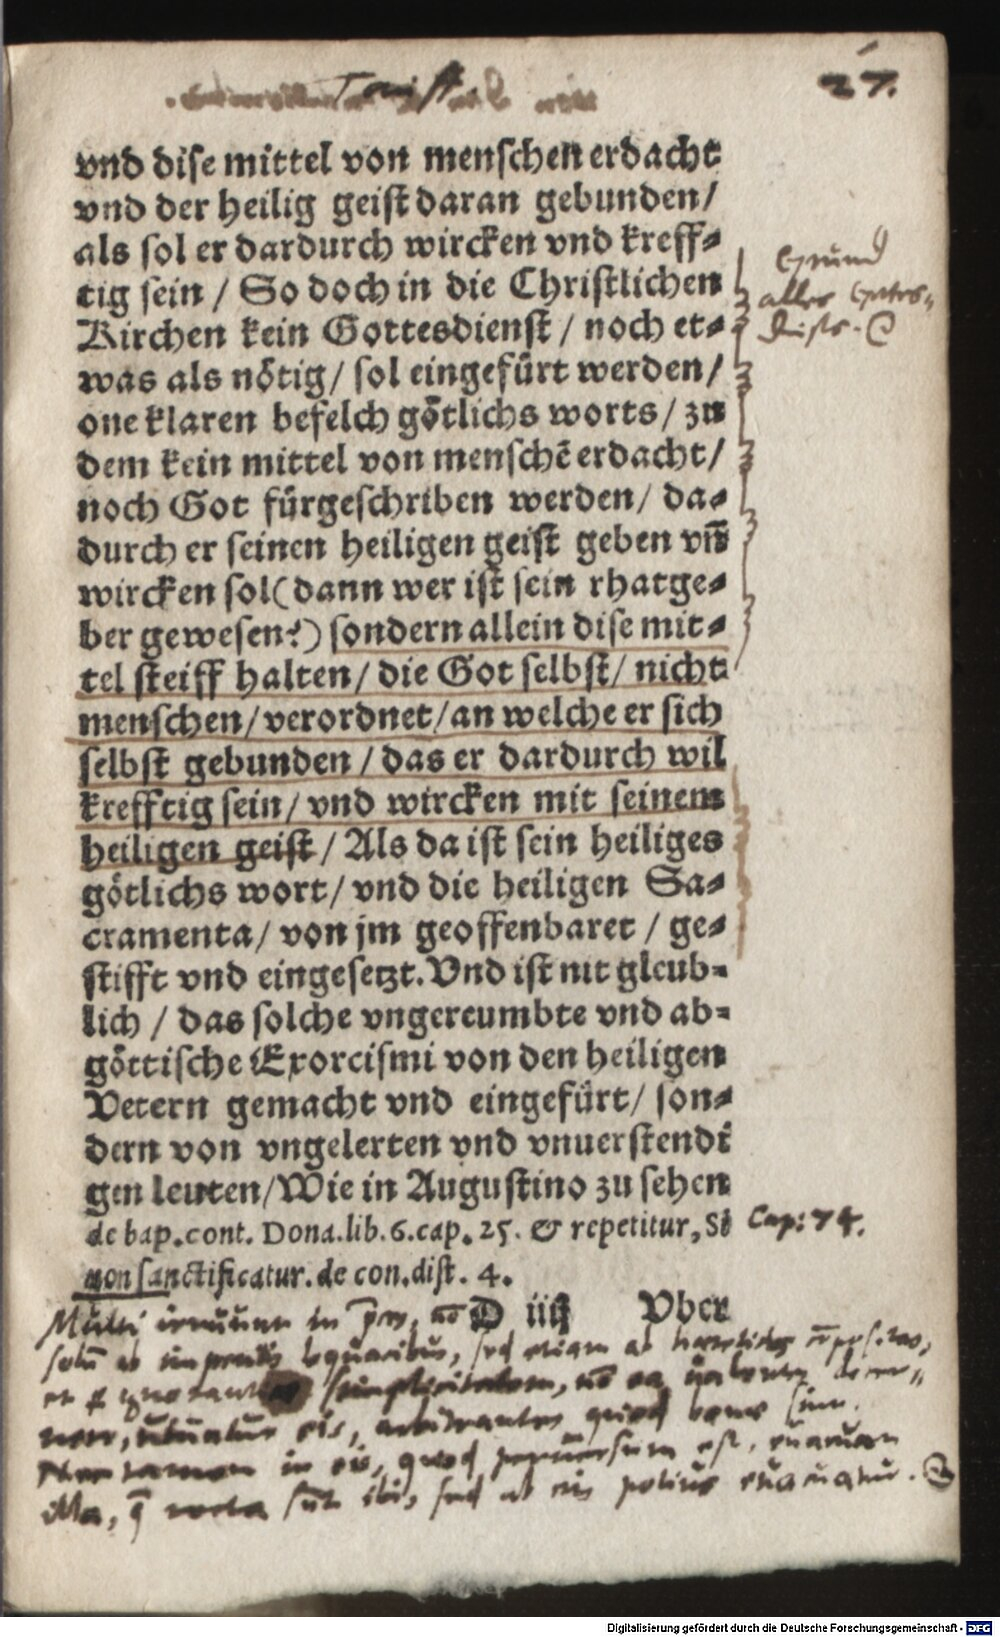 Tauff.
27.
vnd dise mittel von menschen erdacht
vnd der heilig geist daran gebunden/
als sol er dardurch wircken vnd kreff⸗
tig sein / So doch in die Christlichen
Kirchen kein Gottesdienst / noch et⸗
was als nötig/ sol eingefürt werden/
one klaren befelch götlichs worts/ zu
dem kein mittel von menschẽ erdacht/
noch Got fürgeschriben werden/ da⸗
durch er seinen heiligen geist geben vñ
wircken sol(dann wer ist sein rhatge⸗
ber gewesen?) sondern allein dise mit⸗
tel steiff halten/ die Got selbst/ nicht
menschen/ verordnet/ an welche er sich
selbst gebunden / das er dardurch wil
krefftig sein/ vnd wircken mit seinem
heiligen geist/ Als da ist sein heiliges
götlichs wort/ vnd die heiligen Sa⸗
cramenta/ von jm geoffenbaret / ge⸗
stifft vnd eingesetzt. Vnd ist nit gleub⸗
lich / das solche vngereumbte vnd ab⸗
göttische Exorcismi von den heiligen
Vetern gemacht vnd eingefürt/ son⸗
dern von vngelerten vnd vnuerstendi
gen leuten/ Wie in Augustino zu sehen
de bap. cont. Dona. lib. 6. cap. 25. & repetitur, Si
non sanctificatur. de con. dist. 4.
D iiij Vber
Grund
alles Gotes⸗
dinsts.
Cap: 74.
Multi irruunt in
loquacibus, sed etiam ab
simplicitatem,
utuntur eis, arbitrantes quod
in eis, quod peruersum est,
illa, sed ab eis potius